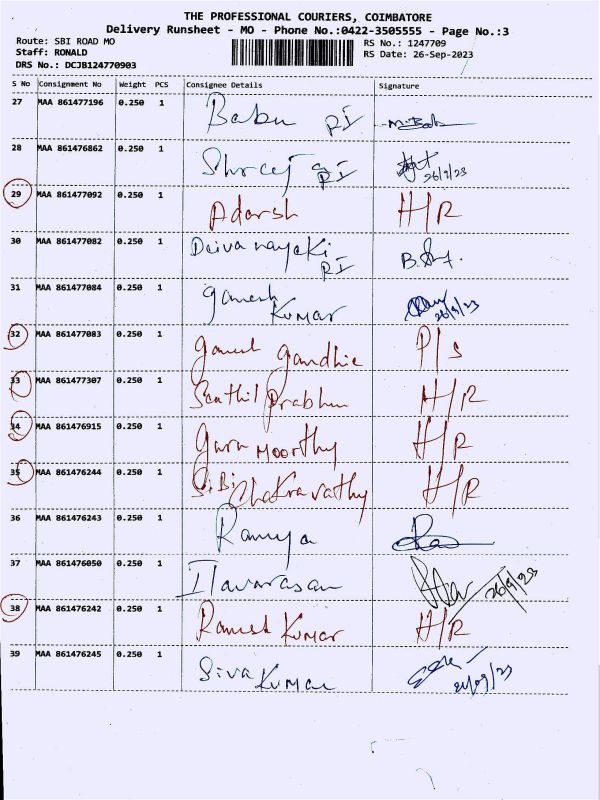 THE PROFESSIONAL COURIERS, COIMBATORE
Delivery Runsheet - MO - Phone No.:0422-3505555 - Page No.:3
Route: SBI ROAD MO
RS No.: 1247709
Staff: RONALD
RS Date: 26-Sep-2023
DRS No.: DCJB124770903
S No Consignment No Weight PCS Consignee Details Signature
27 MAA 861477196 0.250 1 Babu RI
28 MAA 861476862 0.250 1 RI 26/9/23
29 MAA 861477092 0.250 1 Adarsh H/R
30 MAA 861477082 0.250 1 Daivanayaki RI
31 MAA 861477084 0.250 1 Ganesh Kumar 26/9/23
32 MAA 861477083 0.250 1 Gandhie P/S
33 MAA 861477307 0.250 1 Senthil Prabhu H/R
34 MAA 861476915 0.250 1 Guru Moorthy H/R
35 MAA 861476244 0.250 1 Sibi Chakravathy H/R
36 MAA 861476243 0.250 1 Ramya
37 MAA 861476050 0.250 1 Ilavarasan 26/9/23
38 MAA 861476242 0.250 1 Ramesh Kumar H/R
39 MAA 861476245 0.250 1 Siva Kumar